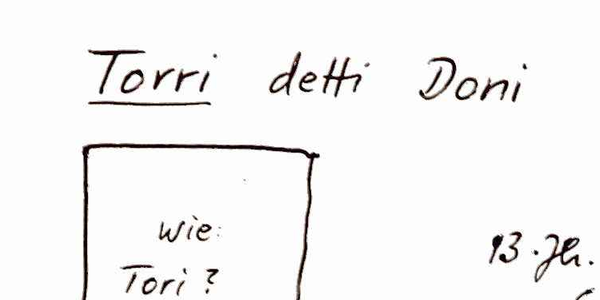 Torri detti Doni
wie:
Tori?
13. Jh.